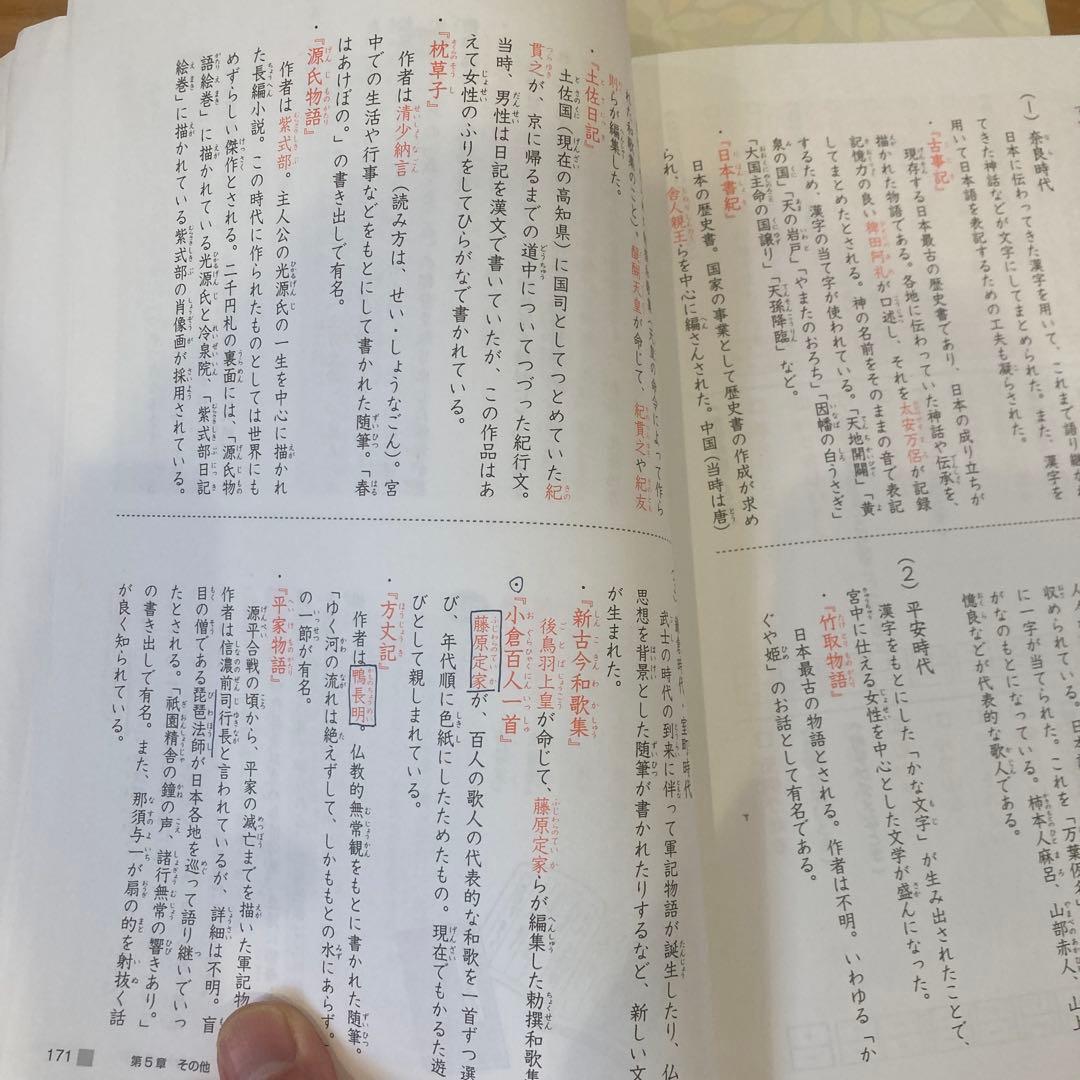 (1) 奈良時代
日本に伝わってきた漢字を用いて、これまで語り継が
てきた神話などが文字にしてまとめられた。また、漢字を
用いて日本語を表記するための工夫も凝らされた。
・『古事記』
現存する日本最古の歴史書であり、日本の成り立ちが
描かれた物語である。各地に伝わっていた神話や伝承を、
記憶力の良い稗田阿礼が口述し、それを太安万侶が記録
してまとめたとされる。神の名前をそのままの音で表記
するため、漢字の当て字が使われている。「天地開闢」「黄
泉の国」「天の岩戸」「やまたのおろち」「因幡の白うさぎ」
「大国主命の国譲り」「天孫降臨」など。
・『日本書紀』
日本の歴史書。国家の事業として歴史書の作成が求め
られ、舎人親王らを中心に編さんされた。中国(当時は唐)
収められている。
に一字が当てられた。これを「万葉仮名」
がなのもとになっている。柿本人麻呂、山部赤人、山上
憶良などが代表的な歌人である。
(2) 平安時代
漢字をもとにした「かな文字」が生み出されたことで、
宮中に仕える女性を中心とした文学が盛んになった。
・『竹取物語』
日本最古の物語とされる。作者は不明。いわゆる「か
ぐや姫」のお話として有名である。
れた和歌集のこと)、醍醐天皇が命じて、紀貫之や紀友
則らが編集した。
・『土佐日記』
土佐国(現在の高知県)に国司としてつとめていた紀
貫之が、京に帰るまでの道中についてつづった紀行文。
当時、男性は日記を漢文で書いていたが、この作品はあ
えて女性のふりをしてひらがなで書かれている。
・『枕草子』
作者は清少納言(読み方は、せい・しょうなごん)。宮
中での生活や行事などをもとにして書かれた随筆。「春
はあけぼの。」の書き出しで有名。
・『源氏物語』
作者は紫式部。主人公の光源氏の一生を中心に描かれ
た長編小説。この時代に作られたものとしては世界にも
めずらしい傑作とされる。二千円札の裏面には、「源氏物
語絵巻」に描かれている光源氏と冷泉院、「紫式部日記
絵巻」に描かれている紫式部の肖像画が採用されている。
鎌倉時代、室町時代
武士の時代の到来に伴って軍記物語が誕生したり、仏
思想を背景とした随筆が書かれたりするなど、新しい文
が生まれた。
・『新古今和歌集』
後鳥羽上皇が命じて、藤原定家らが編集した勅撰和歌集
・『小倉百人一首』
藤原定家が、百人の歌人の代表的な和歌を一首ずつ選
び、年代順に色紙にしたためたもの。現在でもかるた遊
びとして親しまれている。
・『方丈記』
作者は鴨長明。仏教的無常観をもとに書かれた随筆。
「ゆく河の流れは絶えずして、しかももとの水にあらず。」
の一節が有名。
・『平家物語』
源平合戦の頃から、平家の滅亡までを描いた軍記物
作者は信濃前司行長と言われているが、詳細は不明。盲
目の僧である琵琶法師が日本各地を巡って語り継いでいっ
たとされる。「祇園精舎の鐘の声、諸行無常の響きあり。」
の書き出しで有名。また、那須与一が扇の的を射抜く話
が良く知られている。
171 第5章 その他